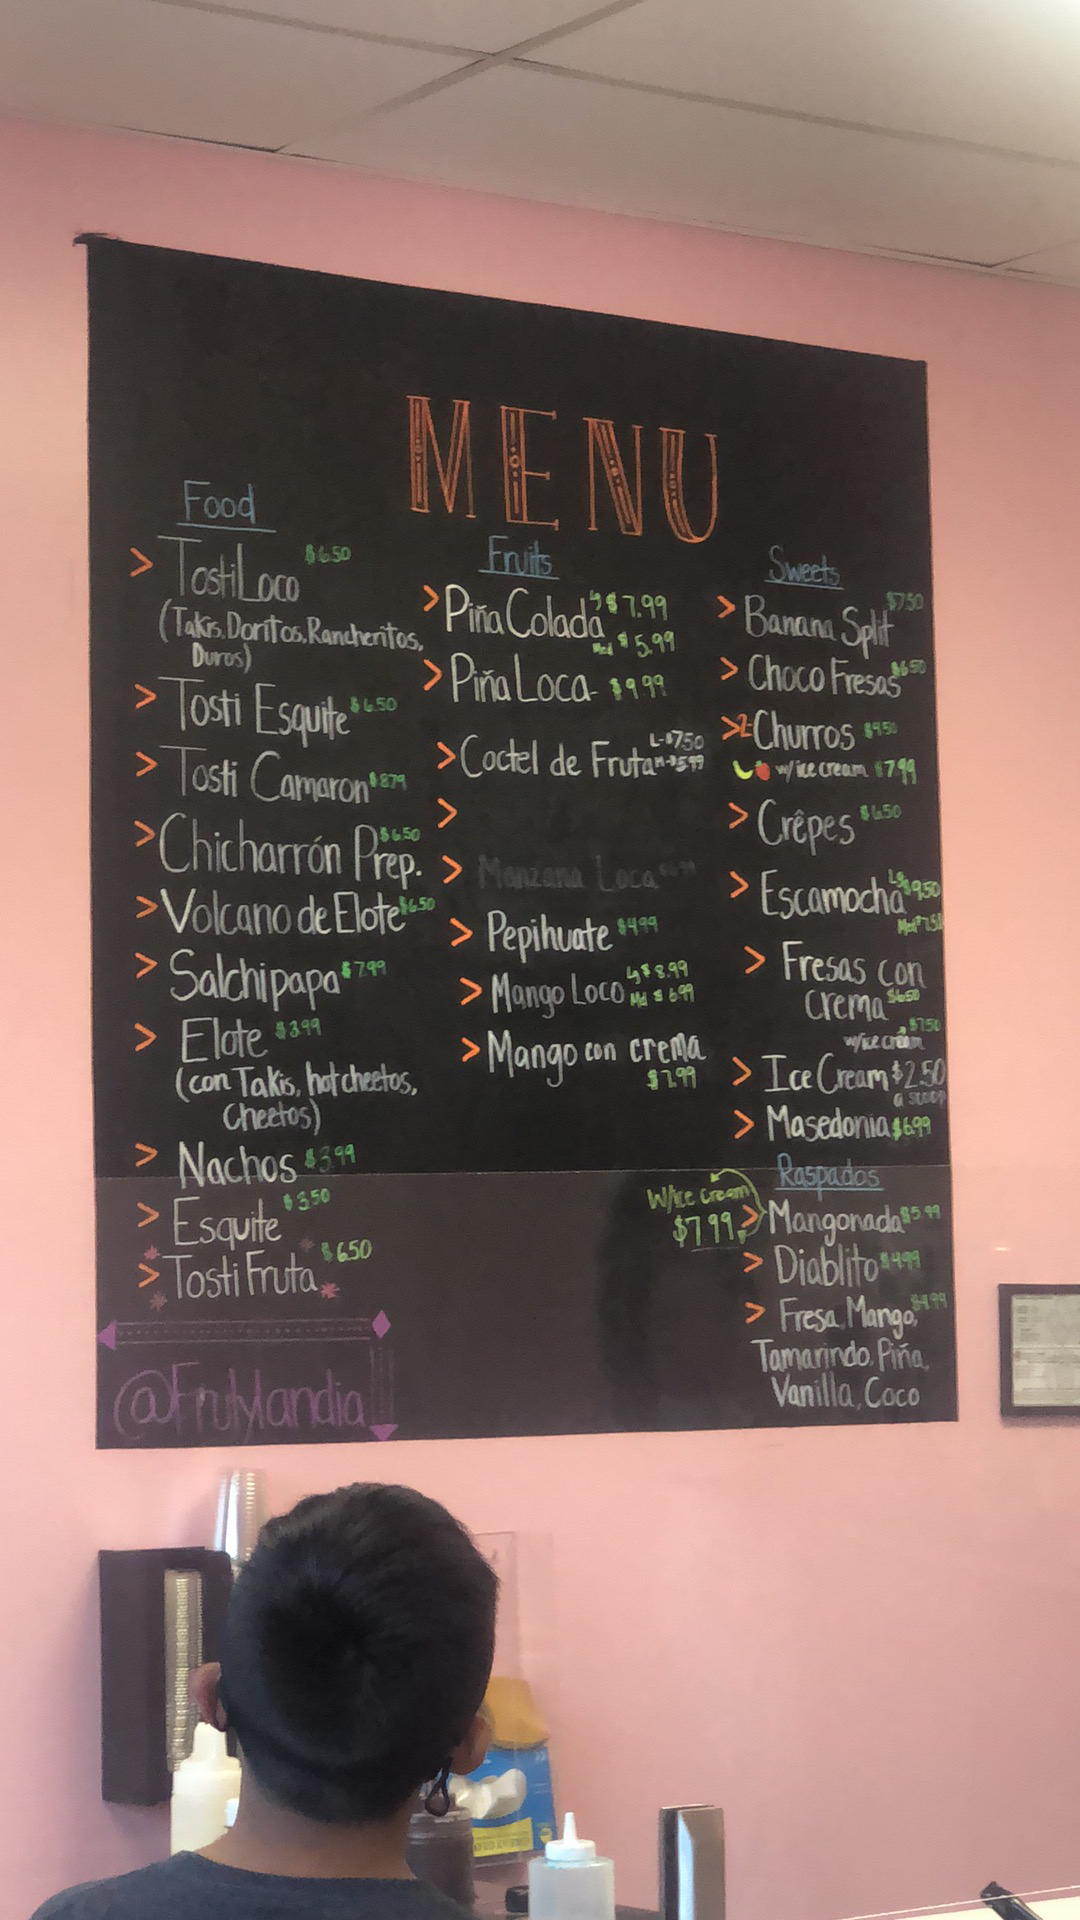 MENU
Food
> TostiLoco $6.50
(Takis, Doritos, Rancheritos,
Duros)
> Tosti Esquite $6.50
> Tosti Camaron $8.79
> Chicharrón Prep. $6.50
> Volcano de Elote $6.50
> Salchipapa $7.99
> Elote $3.99
(con Takis, hot cheetos,
Cheetos)
> Nachos $3.99
> Esquite $3.50
> Tosti Fruta $6.50
@Frutylandia
Fruits
> Piña Colada Lg $7.99
Med $5.99
> Piña Loca - $9.99
> Coctel de Fruta L-$7.50
M-$5.99
>
> Manzana Loca
> Pepihuate $4.99
> Mango Loco Lg $8.99
Md $6.99
> Mango con crema
$7.99
Sweets
> Banana Split $7.50
> Choco Fresas $6.50
> 2-Churros $4.50
w/ice cream $7.99
> Crêpes $6.50
> Escamocha Lg $9.50
Med $7.50
> Fresas con
Crema $6.50
$7.50
w/ice cream
> Ice Cream $2.50
a scoop
> Masedonia $6.99
Raspados
W/Ice Cream
$7.99
> Mangonada $5.99
> Diablito $4.99
> Fresa, Mango, $4.99
Tamarindo, Piña,
Vanilla, Coco